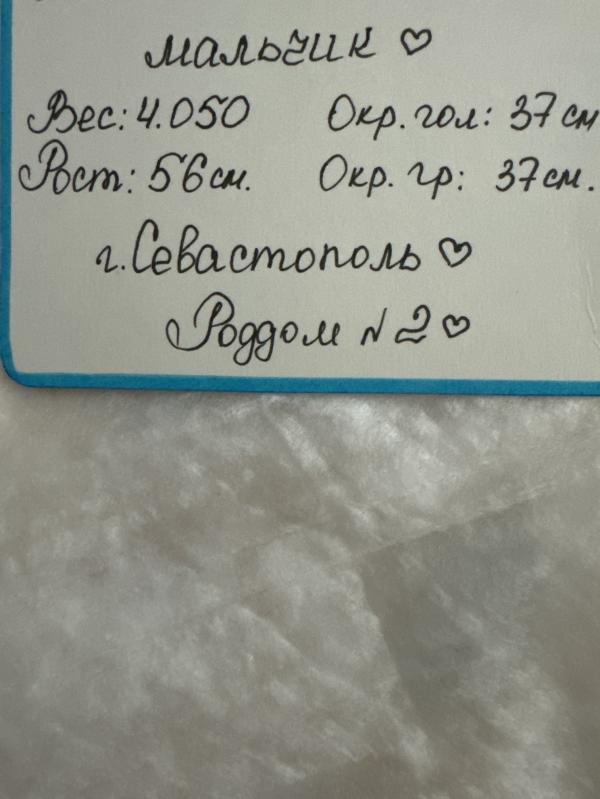 мальчик ♡
Вес: 4.050 Окр. гол: 37 см
Рост: 56 см. Окр. гр: 37 см.
г. Севастополь ♡
Роддом N2 ♡